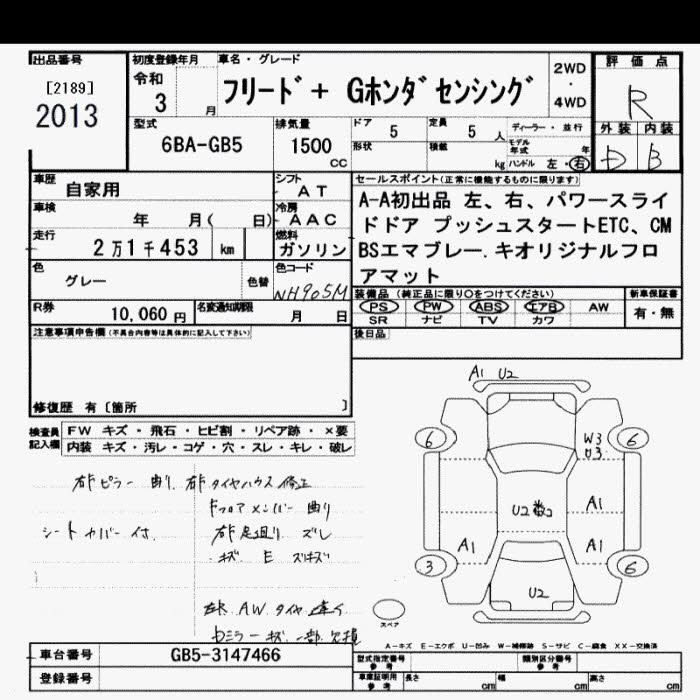 出品番号
[2189]
2013
初度登録年月
令和
3 月
車名・グレード
フリード+ Gホンダセンシング
2WD
・
4WD
評価点
R
外装 内装
D B
型式
6BA-GB5
排気量
1500
CC
ドア
5
定員
5 人
形状
積載
kg
ディーラー・並行
モデル年式 年
ハンドル 左・右
車歴
自家用
シフト
AT
車検
年 月( 日)
冷房
AAC
走行
2万1千453 km
燃料
ガソリン
色
グレー
色替
色コード
NH905M
R券
10,060 円
名変通知期限
月 日
セールスポイント(正常に機能するものに限ります)
A-A初出品 左、右、パワースライ
ドドア プッシュスタートETC、CM
BSエマブレー.キオリジナルフロ
アマット
装備品(純正品に限り○をつけてください)
PS PW ABS エアB AW
SR ナビ TV カワ
新車保証書
有・無
後日品
注意事項申告欄(不具合内容等は具体的に記入して下さい)
修復歴 有〔箇所 〕
検査員記入欄
FW キズ・飛石・ヒビ割・リペア跡・×要
内装 キズ・汚レ・コゲ・穴・スレ・キレ・破レ
右Fピラー 曲り 右Fタイヤハウス 修正
Fフロアメンバー 曲り
シートカバー付 右F足廻り ズレ
キズ E
AW タイヤ 違い
ミラーキズ 一部欠損
A1 U2
6
W3
U3
6
U2
A1
A1
A1
3
6
U2
スペア
A-キズ E-エクボ U-凹み W-補修跡 S-サビ C-腐食 XX-交換済
車台番号
GB5-3147466
登録番号
型式指定番号
参考
類別区分番号
参考
車庫証明用
参考
長さ cm
幅 cm
高さ cm